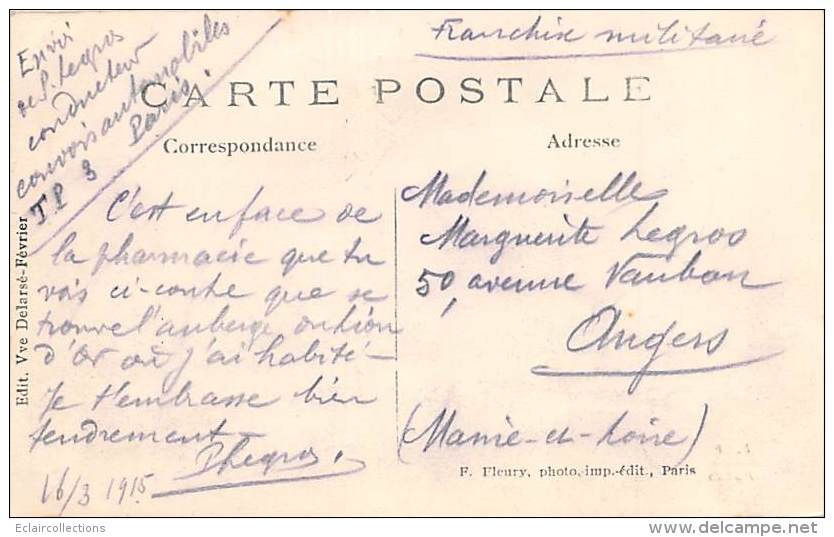 Franchise militaire
Envoi
de P. Legros
conducteur
convois automobiles
T.P 3 Paris.
CARTE POSTALE
Correspondance
Adresse
C'est en face de
la pharmacie que tu
vois ci-contre que se
trouve l'auberge du Lion
d'Or où j'ai habité-
Je t'embrasse bien
tendrement-
PLegros.
16/3 1915
Mademoiselle
Marguerite Legros
50, avenue Vauban
Angers
(Maine-et-Loire)
F. Fleury, photo, imp.-édit., Paris
Edit. Vve Delarse-Février
Eclaircollections
delcampe.net